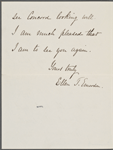 see Concord looking well.
I am much pleased that
I am to see you again.
Yours truly
Ellen T. Emerson